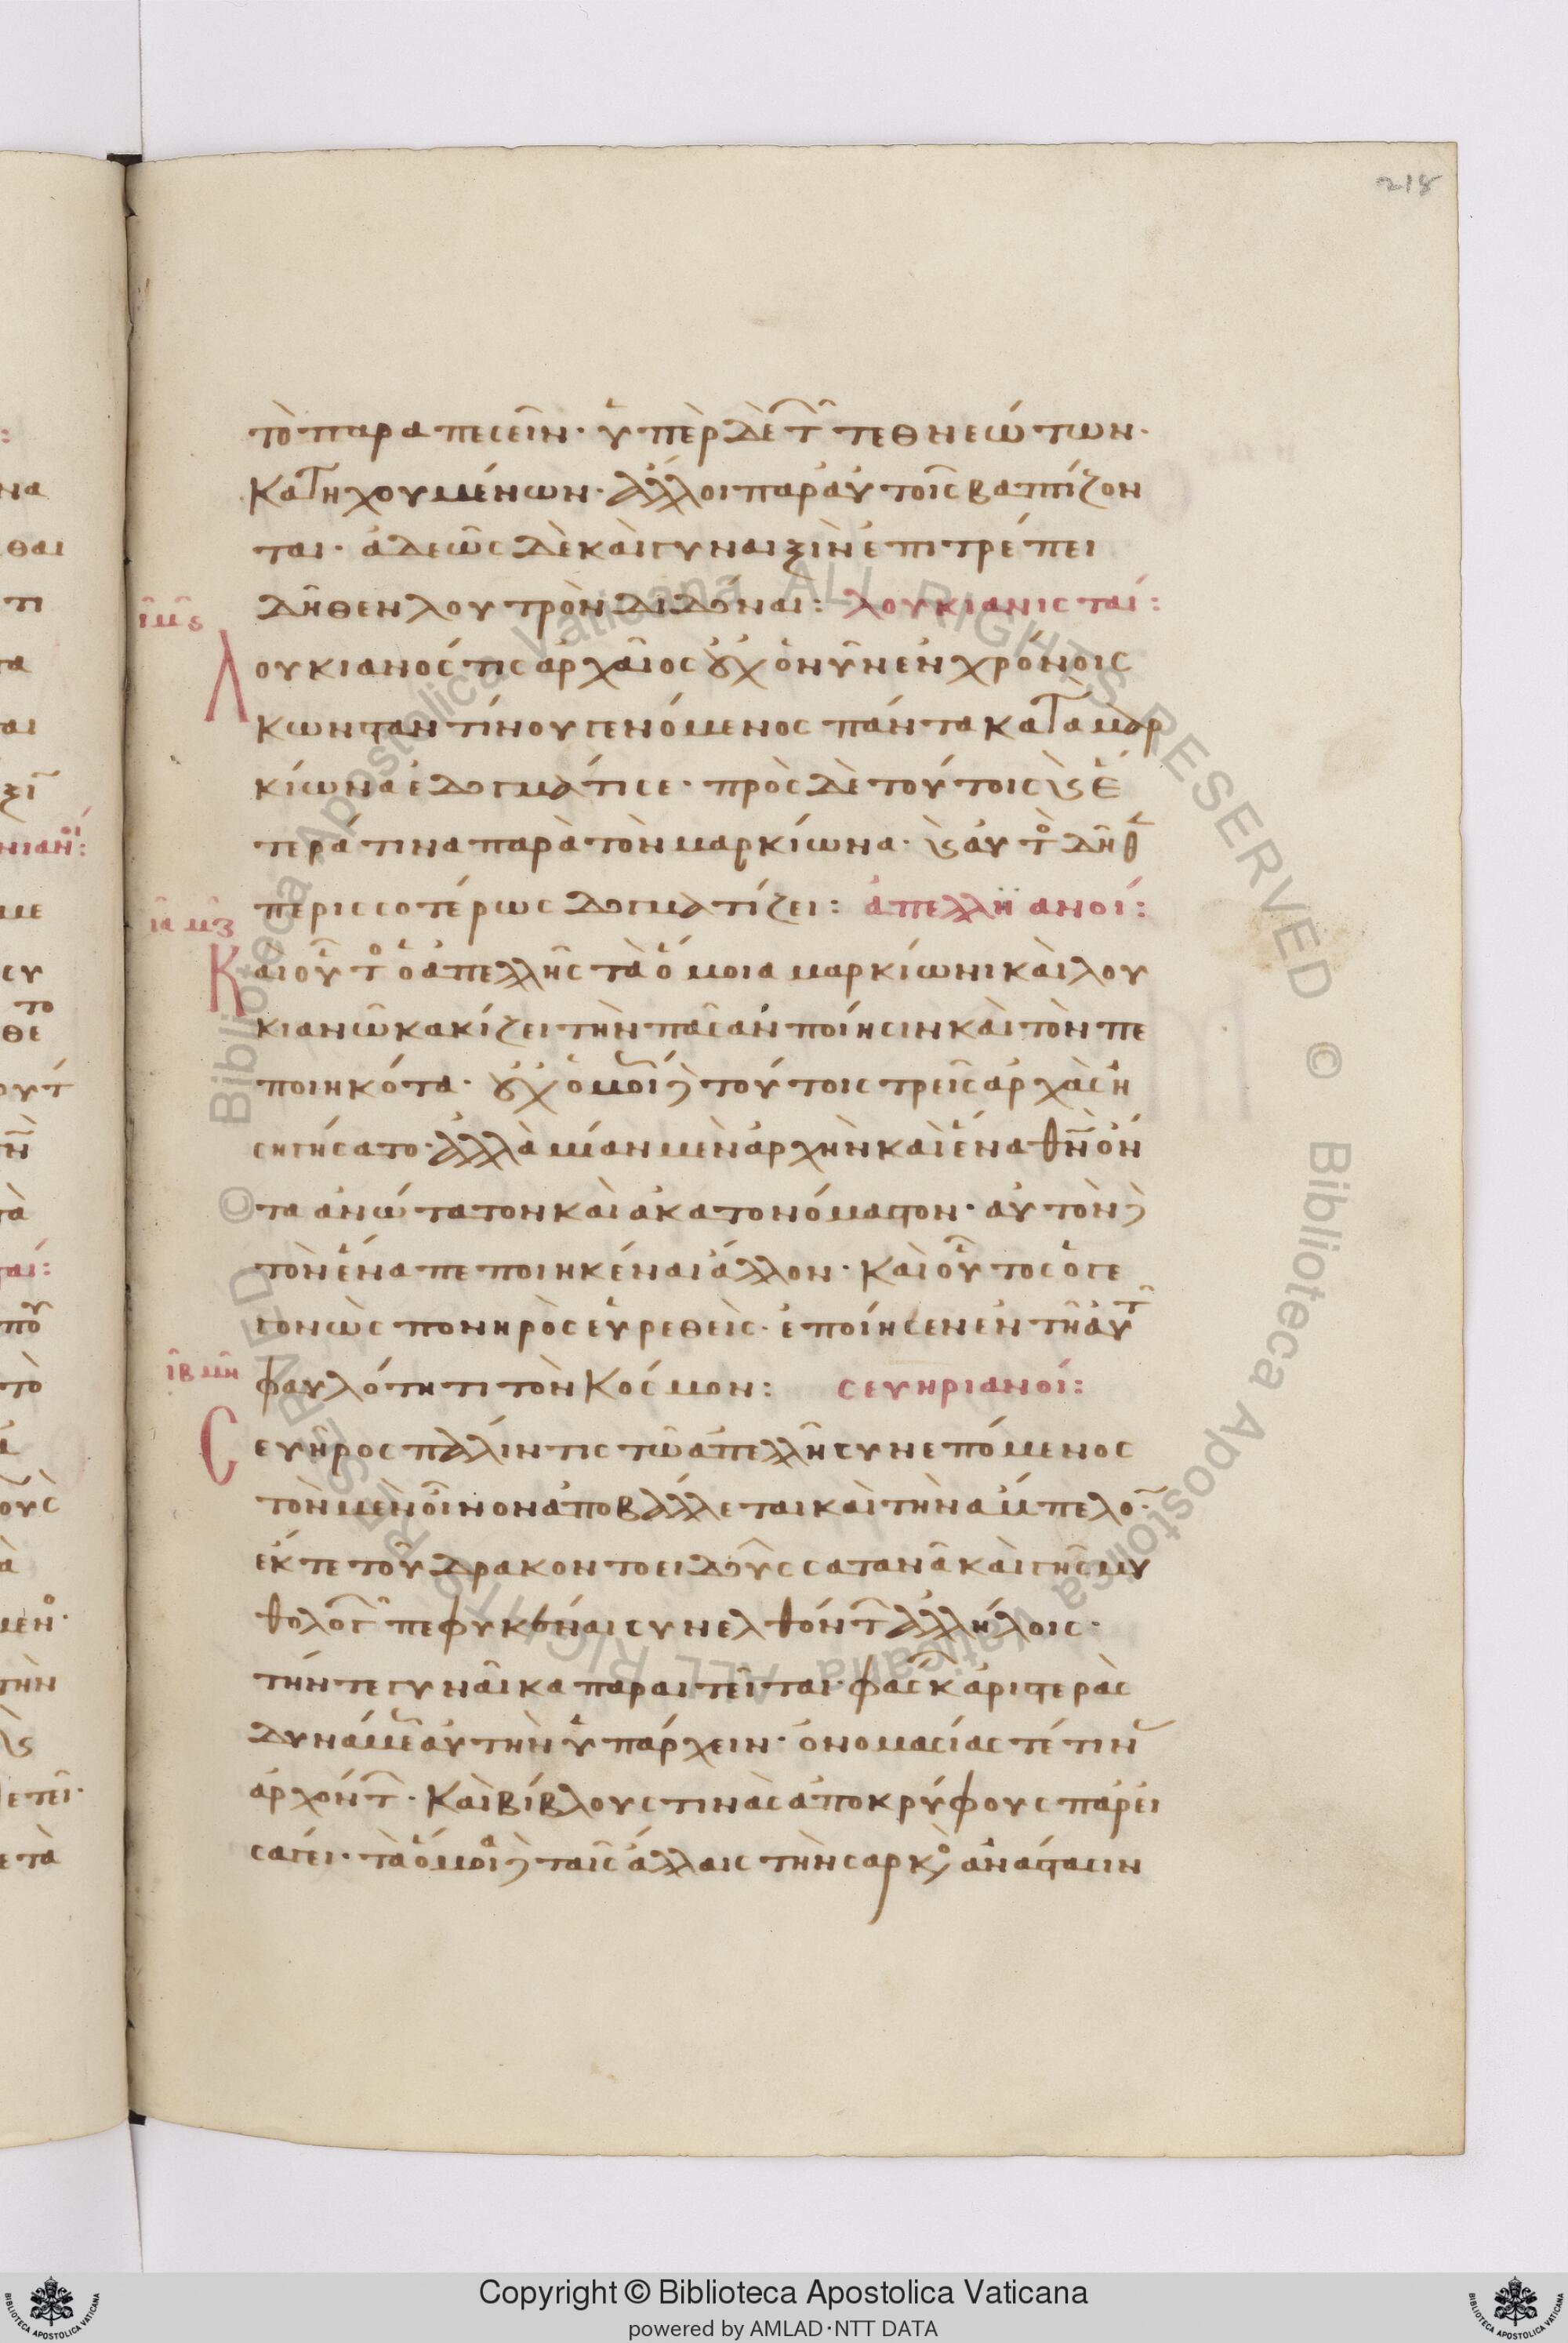 218
τὸ παραπεσεῖν· ὑπὲρ δὲ τ̑ τεθνεώτων·
Κατηχουμένων· ἄλλοι παρ αὐτοῖς βαπτίζον
ται· ἀδεῶς δὲ καὶ γυναιξὶν ἐπιτρέπει
δῆθεν λουτρὸν διδόναι: λουκιανισταί:
ῑ μ̄ς
Λουκιανός τις ἀρχαῖος οὐχ ὁ νῦν ἐν χρόνοις
κωνσταντίνου γενόμενος πάντα κατὰ μαρ
κίωνα ἐδογμάτισε· πρὸς δὲ τούτοις ϗ ἕ
τερά τινα παρὰ τὸν μαρκίωνα· ϗ αὐτὸ δῆθ
περισσοτέρως δογματίζει: ἀπελληϊανοί:
ῑᾱ μ̄ζ
Καὶ οὗτο ὁ ἀπελλῆς τὰ ὅμοια μαρκίωνι καὶ λου
κιανῶ κακίζει τὴν πᾶσαν ποίησιν καὶ τὸν πε
ποιηκότα· οὐχ ὁμοί δὲ τούτοις τρεῖς ἀρχὰς ἡ
σηγήσατο· ἀλλὰ μίαν μὲν ἀρχὴν καὶ ἕνα θ̄ν̄ ὄν
τα ἀνώτατον καὶ ἀκατονόμαστον· αὐτὸν δὲ
τὸν ἕνα πεποιηκέναι ἄλλον· Καὶ οὗτος ὅγε
γονὼς πονηρὸς εὑρεθεὶς· ἐποίησεν ἐν τῆ αὐτ
φαυλότητι τὸν Κόσμον: σευηριανοί:
ῑβ̄ μ̄η
Σευῆρος πάλιν τις τῶ ἀπελλῆ συνεπόμενος
τὸν μὲν οἶνον ἀποβάλλεται καὶ τὴν ἄμπελο̄·
ἐκ τε τοῦ δρακοντοειδοῦς σατανᾶ καὶ γῆς μυ
θολογ πεφυκέναι συνελθόντ ἀλλήλοις·
τήν τε γυναῖκα παραιτεῖται· φάσκ ἀριστερὰς
δυνάμε αὐτὴν ὑπάρχειν· ὀνομασίας τέ τιν
ἀρχόντ· Καὶ βίβλους τινὰς ἀποκρύφους παρει
σάγει· τὰ ὅμοι δὲ ταῖς ἄλλαις τὴν σαρκὸ ἀνάστασιν
Copyright © Biblioteca Apostolica Vaticana
powered by AMLAD·NTT DATA